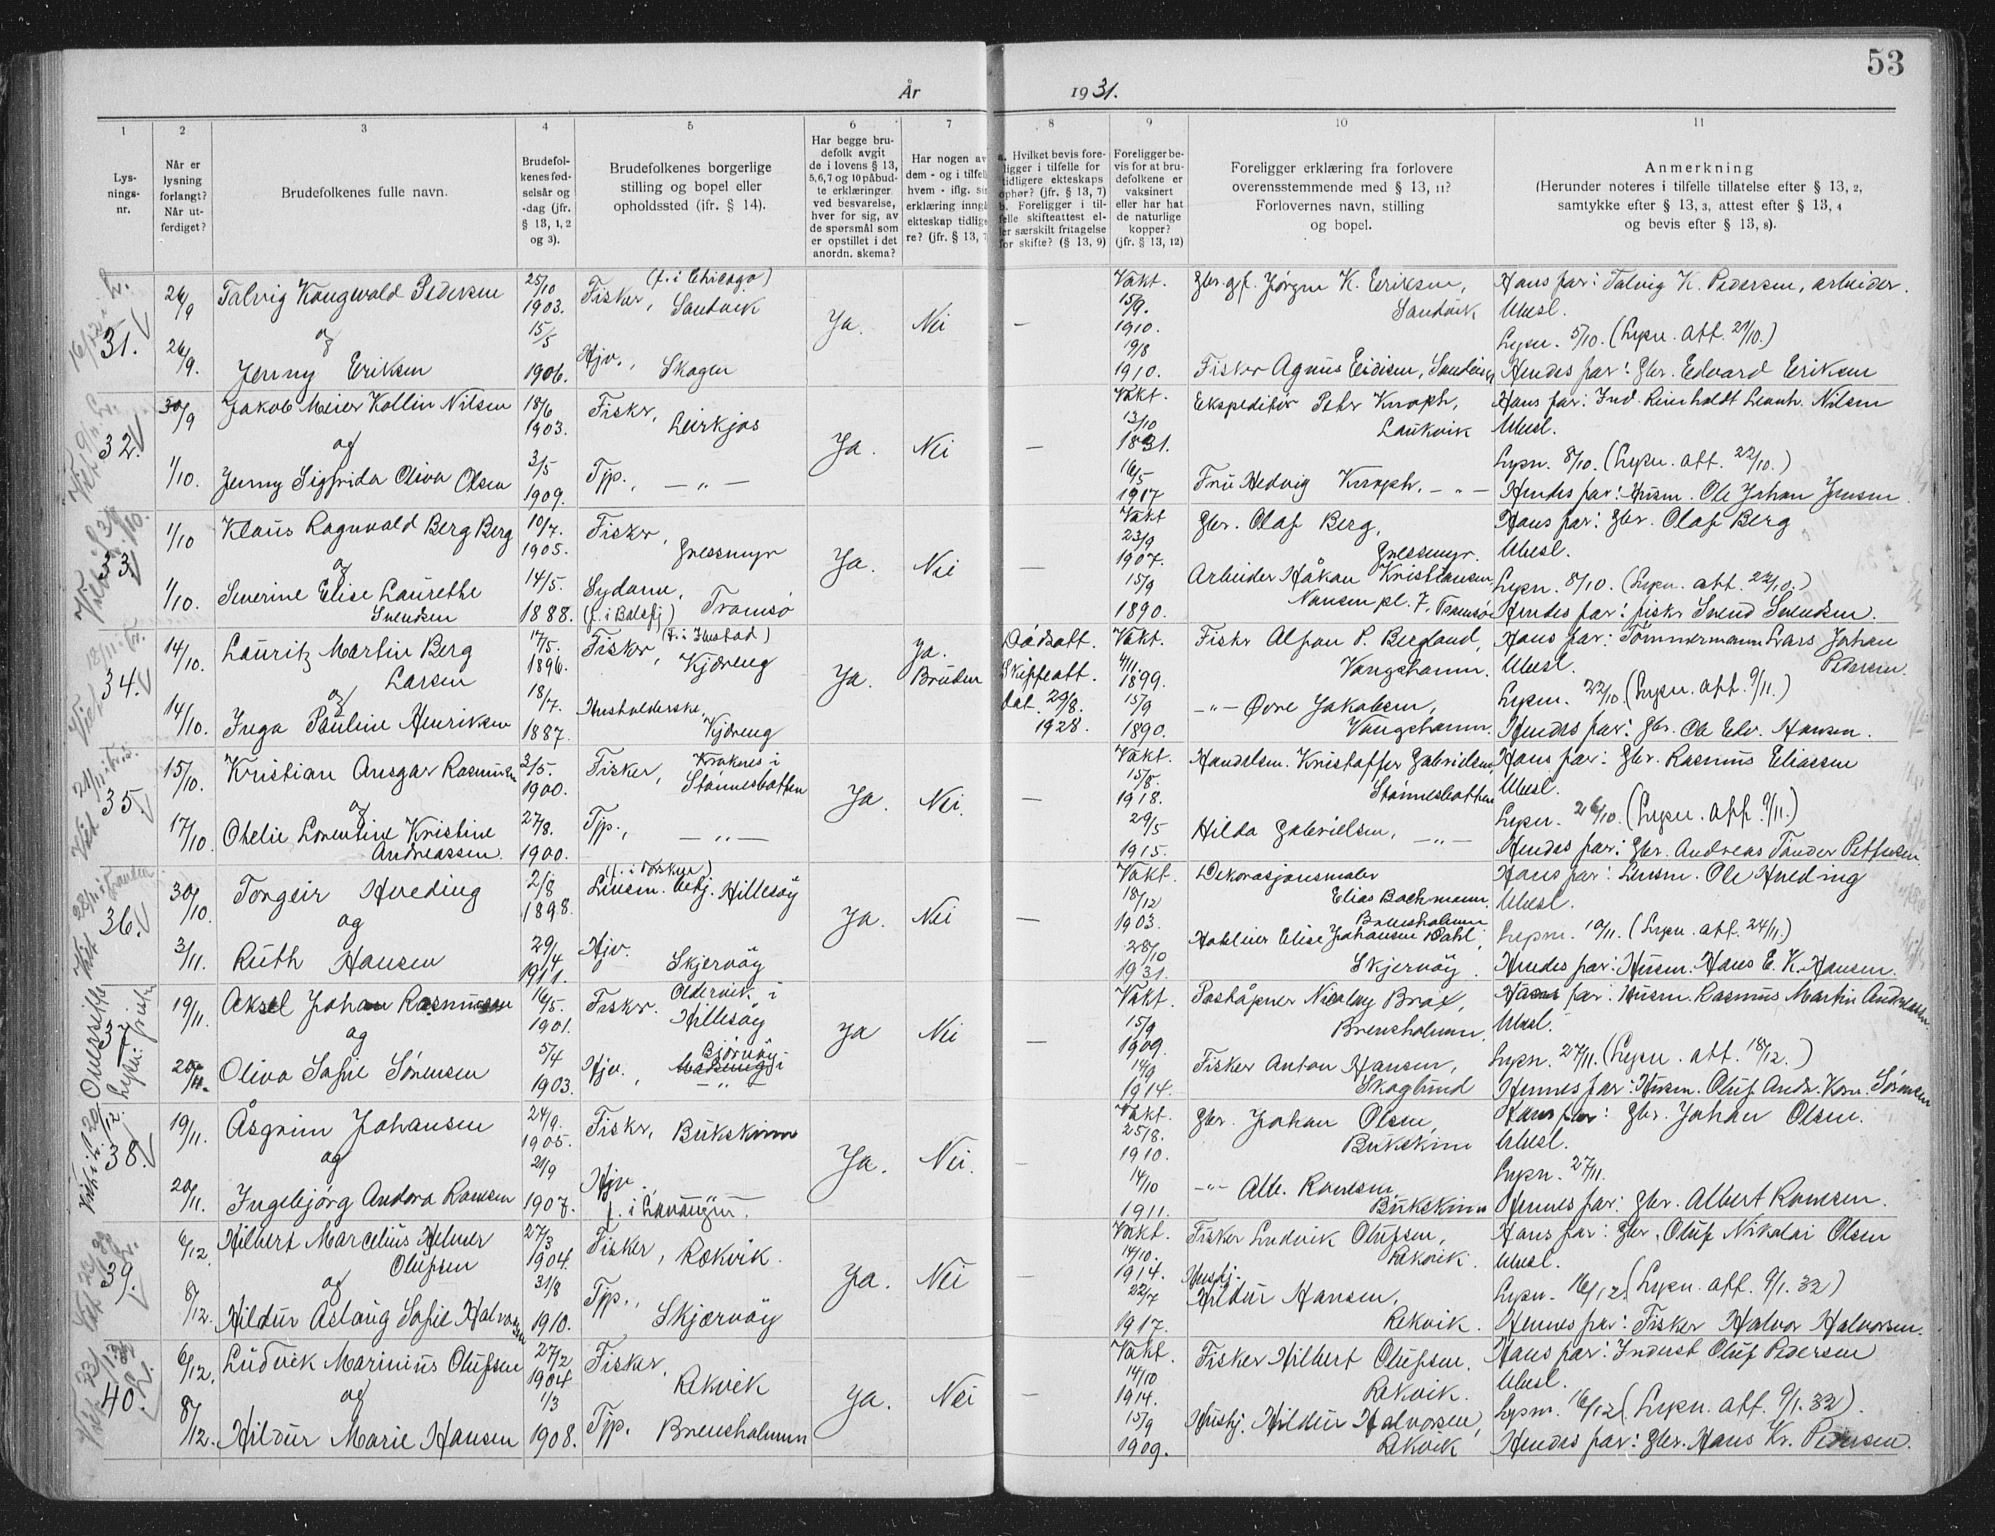 53
År 1931.
1 2 3 4 5 6 7 8 9 10 11
Lysningsnr.
Når er lysning forlangt? Når utferdiget?
Brudefolkenes fulle navn.
Brudefolkenes fødselsår og -dag (jfr. § 13, 1, 2 og 3).
Brudefolkenes borgerlige stilling og bopel eller opholdssted (jfr. § 14).
Har begge brudefolk avgit de i lovens § 13, 5, 6, 7 og 10 påbudte erklæringer ved besvarelse, hver for sig, av de spørsmål som er opstillet i det anordn. skema?
Har nogen av dem - og i tilfelle hvem - iflg. sin erklæring inngå ekteskap tidligere? (jfr. § 13, 7
a. Hvilket bevis foreligger i tilfelle for tidligere ekteskaps ophør? (jfr. § 13, 7) b. Foreligger i tilfelle skifteattest eller særskilt fritagelse for skifte? (§ 13, 9)
Foreligger bevis for at brudefolkene er vaksinert eller har hat de naturlige kopper? (jfr. § 13, 12)
Foreligger erklæring fra forlovere overensstemmende med § 13, 11? Forlovernes navn, stilling og bopel.
Anmerkning (Herunder noteres i tilfelle tillatelse efter § 13, 2, samtykke efter § 13, 3, attest efter § 13, 4 og bevis efter § 13, 8).
31. 26/9 Talvig Kongwald Pedersen 25/10 1903. Fisker, (f. i Chicago) Sandvik Ja. Nei — Vakt. 15/9. 1910. Gbr. gf. Jørgen K. Eriksen, Sandvik Hans far: Talvig K. Pedersen, arbeider.
Ubesl.
og
Lysn. 5/10. (Lysn. att. 21/10.)
26/9. Jenny Eriksen 15/5 1906. Hjv., Skogen 19/8 1910. Fisker Agnus Eidisen, Sandvik Hendes far: Gbr. Edvard Eriksen
32. 30/9 Jakob Meier Kollin Nilsen 18/6 1903. Fisker, Leirkjos Ja. Nei — Vakt. 13/10 1831. Ekspeditør Peter Knoph, Laukvik Hans far: Ind. Reinholdt Leonh. Nilsen
Ubesl.
og
Lysn. 8/10. (Lysn. att. 22/10.)
1/10. Jenny Sigfrida Oliva Olsen 3/5 1909. Tjp., — " — 16/5 1917 Fru Hedvig Knoph, — " — Hendes far: Husm. Ole Johan Jensen
33. 1/10 Klaus Ragnvald Berg Berg 10/7. 1905. Fisker, Gressmyr Ja. Nei — Vakt 23/9 1907. Gbr. Olaf Berg, Gressmyr. Hans far: Gbr. Olaf Berg
Ubesl.
og
Lysn. 8/10. (Lysn. att. 22/10.)
1/10. Severine Elise Laurethe Svendsen 14/5. 1888. Sydame, (f. i Balsfj) Tromsø 15/9 1890. Arbeider Håkan Kristiansen, Nansen pl. 7, Tromsø Hendes far: fisker Svend Svendsen.
34. 14/10. Lauritz Martin Berg Larsen 17/5. 1896. Fisker, (f. i Ibestad) Kjøreng Ja. Ja. Bruden Dødsatt. Skifteatt. dat. 29/8. 1928. Vakt. 4/11. 1899. Fisker Alfon P. Bergland, Vangshamn. Hans far: Tømmermann Lars Johan Pedersen.
Ubesl.
og
Lysn. 22/10. (Lysn. att. 9/11.)
14/10. Inga Pauline Henriksen 18/7. 1887. Husholderske, Kjøreng 15/9 1890. — " — Øvre Jakobsen, Vangshamn. Hendes far: Gbr. Ole Edv. Hansen.
35. 15/10. Kristian Ansgar Rasmussen 3/5. 1900. Fisker, Kraknes i Stønnesbotten Ja. Nei. — Vakt. 15/8. 1918. Handelsm. Kristoffer Gabrielsen, Stønnesbotten Hans far: Gbr. Rasmus Eliassen
Ubesl.
og
Lysn. 26/10. (Lysn. att. 9/11.)
17/10 Othelie Lorentine Kristine Andreassen. 27/8. 1900. Tjp., — " — 29/5 1915. Hilda Gabrielsen, — " — Hendes far: Gbr. Andreas Tønder Pettersen
36. 30/10. Torgeir Hveding 2/8 1898. (f. i Torsken) Lensm. betj. Hillesøy Ja. Nei — Vakt. 18/12 1903. Dekorasjonsmaler Elias Bachmann, Brensholmen Hans far: Lensm. Ole Hveding
Ubesl.
og
Lysn. 10/11. (Lysn. att. 24/11.)
3/11. Ruth Hansen 29/4 1911. Hjv. Skjervøy 28/10 1931. Elise Johansen Dahl, Skjervøy. Hendes far: Husm. Hans E. K. Hansen.
37 19/11. Aksel Johan Rasmussen 16/5. 1901. Fisker. Oldervik i Hillesøy Ja Nei — Vakt. 15/9 1909. Poståpner Nicolay Brox, Brensholmen. Hans far: Husm. Rasmus Martin Andreassen
Ubesl.
og
Lysn. 27/11. (Lysn. att. 18/12.)
20/11. Oliva Sofie Sørensen 5/4 1903. Hjv., Bjørnøy i — " — 14/9 1914. Fisker Anton Hansen, Skoglund Hennes far: Husm. Oluf Andr. Korn. Sørensen
38. 19/11. Åsgrim Johansen 24/9. 1905. Fisker, Bukskinn Ja. Nei. — Vakt. 25/8. 1910. Gbr. Johan Olsen, Bukskinn Hans far: Gbr. Johan Olsen.
Ubesl.
og
Lysn. 27/11.
20/11. Ingebjørg Andora Ronesen 21/9 1907. Hjv. f. i Lavangen. 14/10 1911. — " — Alb. Ronesen, Bukskinn Hennes far: Gbr. Albert Ronesen.
39. 6/12. Hilbert Marcelius Helmer Olufsen 27/3 1904. Fisker, Rekvik. Ja. Nei — Vakt. 14/10. 1914. Fisker Ludvik Olufsen, Rekvik. Hans far: Gbr. Oluf Nikolai Olsen
Ubesl.
og
Lysn. 16/12. (Lysn. att. 9/1. 32)
8/12. Hildur Aslaug Sofie Halvorsen 31/8 1910. Tjp., Skjærvøy 22/7 1917. Husbj. Hildur Hansen, Rekvik. Hennes far: Fisker Halvor Halvorsen.
40. 6/12. Ludvik Marinius Olufsen 27/2 1904 Fisker, Rekvik Ja. Nei — Vakt. 14/10 1914. Fisker Hilbert Olufsen. Rekvik. Hans far: Inderst Oluf Pedersen
Ubesl.
og
Lysn. 16/12 (Lysn. att. 9/1. 32).
8/12. Hildur Marie Hansen 1/3 1908. Tjp. Brensholmen 15/9 1909. Husbj. Hildur Halvorsen, Rekvik Hendes far: Gbr. Hans Kr. Pedersen.